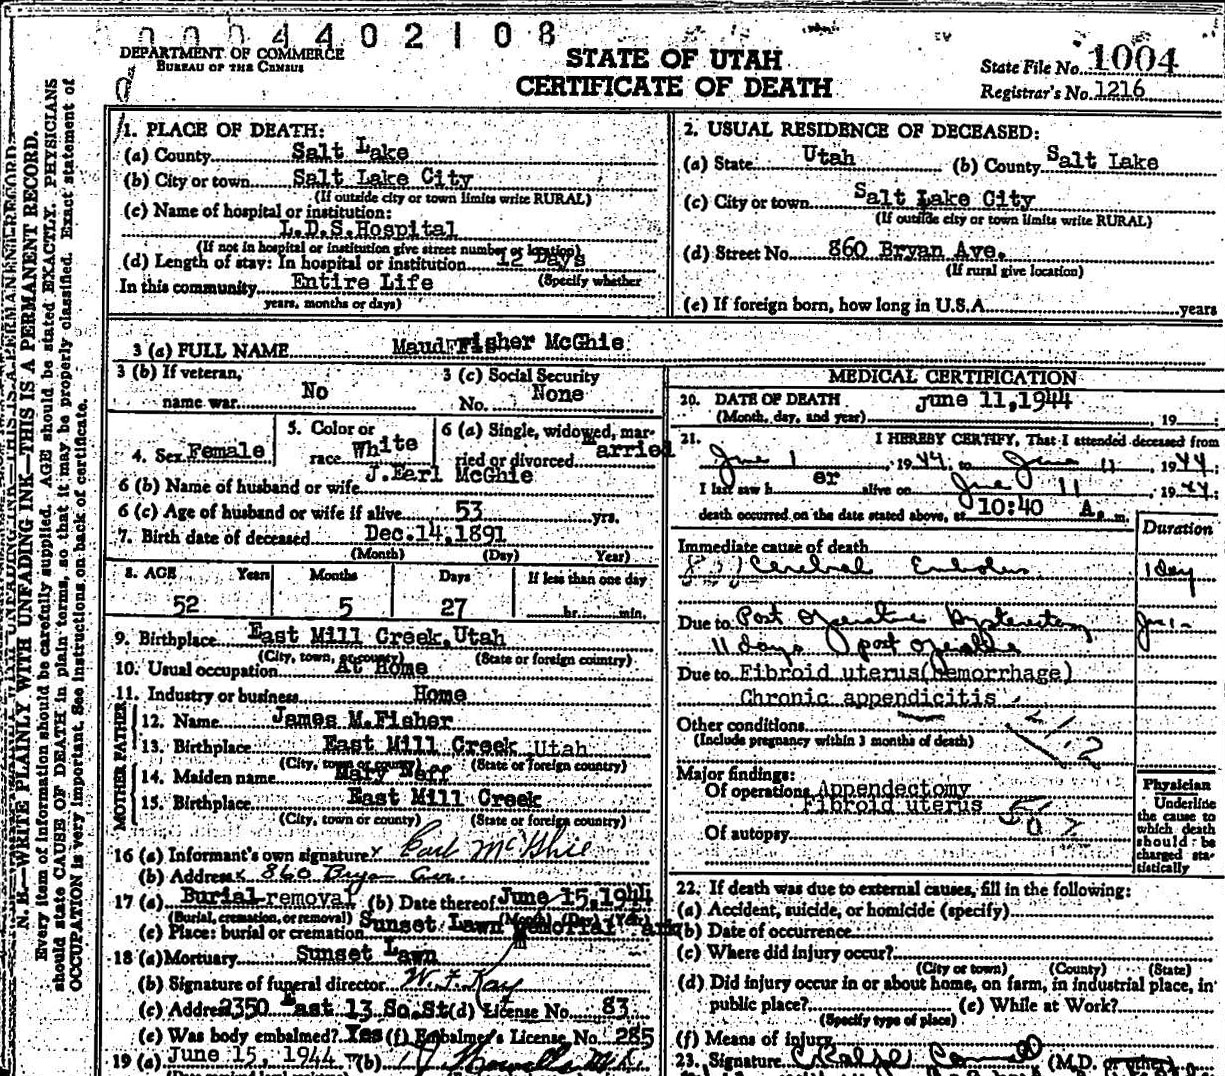 0 0 0 4 4 0 2 1 0 8
DEPARTMENT OF COMMERCE
BUREAU OF THE CENSUS
STATE OF UTAH
CERTIFICATE OF DEATH
State File No. 1004
Registrar's No. 1216
N. B.—WRITE PLAINLY WITH UNFADING INK—THIS IS A PERMANENT RECORD.
Every item of information should be carefully supplied. AGE should be stated EXACTLY. PHYSICIANS
should state CAUSE OF DEATH in plain terms, so that it may be properly classified. Exact statement of
OCCUPATION is very important. See instructions on back of certificate.
1. PLACE OF DEATH:
(a) County Salt Lake
(b) City or town Salt Lake City
(If outside city or town limits write RURAL)
(c) Name of hospital or institution:
L.D.S.Hospital
(If not in hospital or institution give street number or location)
(d) Length of stay: In hospital or institution 12 Days
(Specify whether
In this community Entire Life
years, months or days)
2. USUAL RESIDENCE OF DECEASED:
(a) State Utah (b) County Salt Lake
(c) City or town Salt Lake City
(If outside city or town limits write RURAL)
(d) Street No. 860 Bryan Ave.
(If rural give location)
(e) If foreign born, how long in U.S.A. years
3 (a) FULL NAME Maud Fisher McGhie
3 (b) If veteran, name war No
3 (c) Social Security No. None
4. Sex Female
5. Color or race White
6 (a) Single, widowed, married or divorced married
6 (b) Name of husband or wife J.Earl McGhie
6 (c) Age of husband or wife if alive 53 yrs.
7. Birth date of deceased Dec.14,1891
(Month) (Day) Year)
8. AGE Years Months Days If less than one day
52 5 27 hr. min.
9. Birthplace East Mill Creek, Utah
(City, town, or county) (State or foreign country)
10. Usual occupation At Home
11. Industry or business Home
FATHER
12. Name James M.Fisher
13. Birthplace East Mill Creek Utah
(City, town or county) (State or foreign country)
MOTHER
14. Maiden name Mary Neff
15. Birthplace East Mill Creek
(City, town or county) (State or foreign country)
16 (a) Informant's own signature x Earl McGhie
(b) Address x 860 Bryan Ave.
17 (a) Burial-removal (b) Date thereof June 15,1944
(Burial, cremation, or removal) (Month) (Day) (Year)
(c) Place: burial or cremation Sunset Lawn Memorial Park
18 (a) Mortuary Sunset Lawn
(b) Signature of funeral director W. F. Kay
(c) Address 2350 East 13 So.St (d) License No. 83
(e) Was body embalmed? Yes (f) Embalmer's License No. 285
19 (a) June 15, 1944 (b)
MEDICAL CERTIFICATION
20. DATE OF DEATH June 11,1944
(Month, day, and year) , 19
21. I HEREBY CERTIFY, That I attended deceased from
June 1, 1944, to June 11, 1944
I last saw her alive on June 11, 1944;
death occurred on the date stated above, at 10:40 A. m.
Duration
Immediate cause of death
Cerebral Embolus 1 day
Due to Post Operative Hysterectomy
11 days post operative
Due to Fibroid uterus(hemorrhage)
Chronic appendicitis
Other conditions
(Include pregnancy within 3 months of death)
Major findings:
Of operations Appendectomy
Fibroid uterus
Of autopsy
Physician
Underline
the cause to
which death
should be
charged sta-
tistically
22. If death was due to external causes, fill in the following:
(a) Accident, suicide, or homicide (specify)
(b) Date of occurrence
(c) Where did injury occur?
(City or town) (County) (State)
(d) Did injury occur in or about home, on farm, in industrial place, in
public place? (e) While at Work?
(Specify type of place)
(f) Means of injury
23. Signature (M.D. or other)